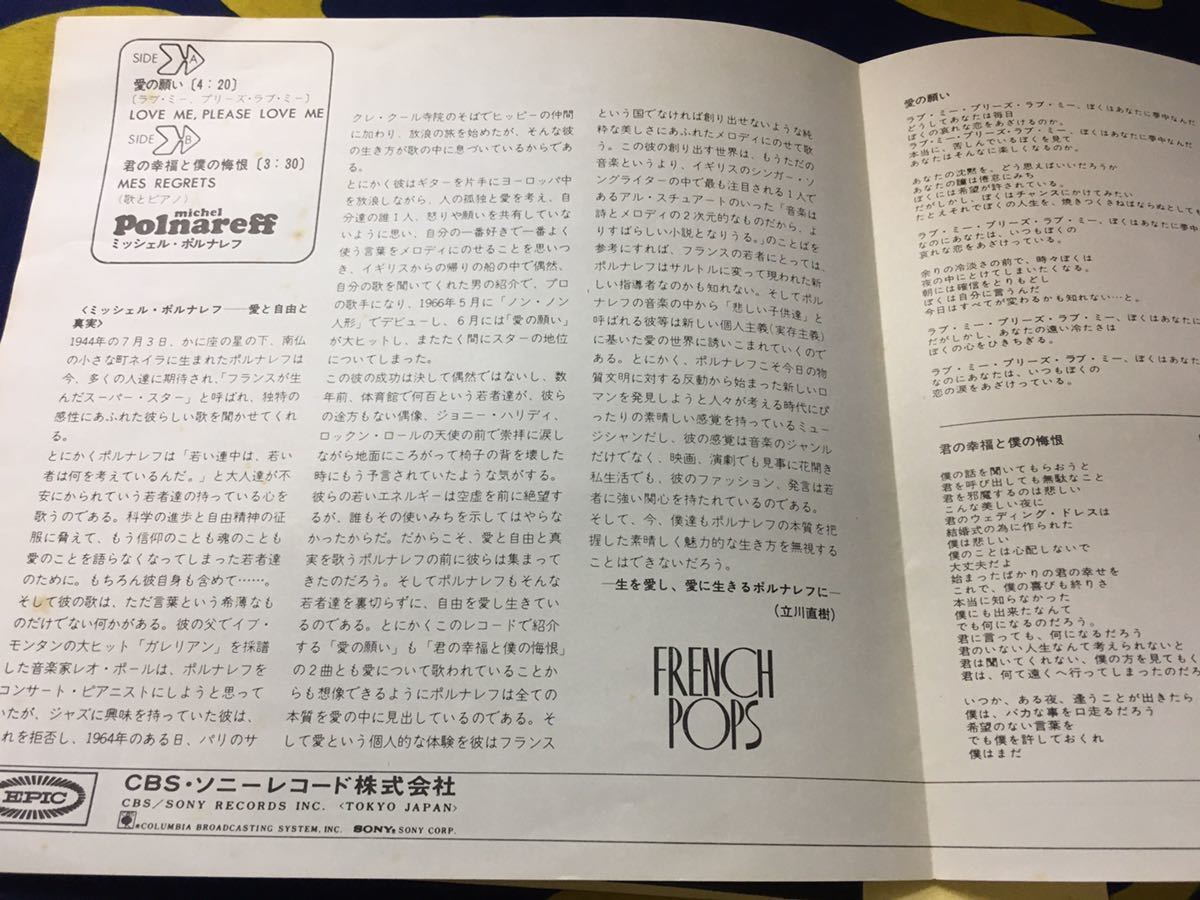 SIDE A
愛の願い〔4:20〕
〔ラブ・ミー、プリーズ・ラブ・ミー〕
LOVE ME, PLEASE LOVE ME
SIDE B
君の幸福と僕の悔恨〔3:30〕
MES REGRETS
(歌とピアノ)
michel
Polnareff
ミッシェル・ポルナレフ
〈ミッシェル・ポルナレフ――愛と自由と
真実〉
1944年の7月3日、かに座の星の下、南仏
の小さな町ネイラに生まれたポルナレフは
今、多くの人達に期待され、「フランスが生
んだスーパー・スター」と呼ばれ、独特の
感性にあふれた彼らしい歌を聞かせてくれ
る。
とにかくポルナレフは「若い連中は、若い
者は何を考えているんだ。」と大人達が不
安にかられていう若者達の持っている心を
歌うのである。科学の進歩と自由精神の征
服に脅えて、もう信仰のことも魂のことも
愛のことを語らなくなってしまった若者達
のために。もちろん彼自身も含めて……。
そして彼の歌は、ただ言葉という希薄なも
のだけでない何かがある。彼の父でイブ・
モンタンの大ヒット「ガレリアン」を採譜
した音楽家レオ・ポールは、ポルナレフを
コンサート・ピアニストにしようと思って
いたが、ジャズに興味を持っていた彼は、
れを拒否し、1964年のある日、パリのサ
クレ・クール寺院のそばでヒッピーの仲間
に加わり、放浪の旅を始めたが、そんな彼
の生き方が歌の中に息づいているからであ
る。
とにかく彼はギターを片手にヨーロッパ中
を放浪しながら、人の孤独と愛を考え、自
分達の誰1人、怒りや願いを共有していな
いように思い、自分の一番好きで一番よく
使う言葉をメロディにのせることを思いつ
き、イギリスからの帰りの船の中で偶然、
自分の歌を聞いてくれた男の紹介で、プロ
の歌手になり、1966年5月に「ノン・ノン
人形」でデビューし、6月には「愛の願い」
が大ヒットし、またたく間にスターの地位
についてしまった。
この彼の成功は決して偶然ではないし、数
年前、体育館で何百という若者達が、彼ら
の途方もない偶像、ジョニー・ハリディ、
ロックン・ロールの天使の前で崇拝に涙し
ながら地面にころがって椅子の背を壊した
時にもう予言されていたような気がする。
彼らの若いエネルギーは空虚を前に絶望す
るが、誰もその使いみちを示してはやらな
かったからだ。だからこそ、愛と自由と真
実を歌うポルナレフの前に彼らは集まって
きたのだろう。そしてポルナレフもそんな
若者達を裏切らずに、自由を愛し生きてい
るのである。とにかくこのレコードで紹介
する「愛の願い」も「君の幸福と僕の悔恨」
の2曲とも愛について歌われていることか
らも想像できるようにポルナレフは全ての
本質を愛の中に見出しているのである。そ
して愛という個人的な体験を彼はフランス
という国でなければ創り出せないような純
粋な美しさにあふれたメロディにのせて歌
う。この彼の創り出す世界は、もうただの
音楽というより、イギリスのシンガー・ソ
ングライターの中で最も注目される1人で
あるアル・スチュアートのいった「音楽は
詩とメロディの2次元的なものだから、よ
りすばらしい小説となりうる。」のことばを
参考にすれば、フランスの若者にとっては、
ポルナレフはサルトルに変って現われた新
しい指導者なのかも知れない。そしてポル
ナレフの音楽の中から「悲しい子供達」と
呼ばれる彼等は新しい個人主義(実存主義)
に基いた愛の世界に誘いこまれていくので
ある。とにかく、ポルナレフこそ今日の物
質文明に対する反動から始まった新しいロ
マンを発見しようと人々が考える時代にぴ
ったりの素晴しい感覚を持っているミュー
ジシャンだし、彼の感覚は音楽のジャンル
だけでなく、映画、演劇でも見事に花開き
私生活でも、彼のファッション、発言は若
者に強い関心を持たれているのである。
そして、今、僕達もポルナレフの本質を把
握した素晴しく魅力的な生き方を無視する
ことはできないだろう。
―生を愛し、愛に生きるポルナレフに―
(立川直樹)
FRENCH
POPS
愛の願い
ラブ・ミー・プリーズ・ラブ・ミー、ぼくはあなたに夢中なんだ
どうしてあなたは毎日
ぼくの哀れな恋をあざけるのか。
ラブ・ミー・プリーズ・ラブ・ミー、ぼくはあなたに夢中なんだ
本当に、苦しんでいるぼくを見て
あなたはそんなに楽しくなるのか。
あなたの沈黙を、どう思えばいいだろうか
あなたの瞳は倦怠にみち
ぼくには希望が許されている。
だがしかし、ぼくはチャンスにかけてみたい
たとえそれでぼくの人生を、焼きつくさねばならぬとしても
ラブ・ミー・プリーズ・ラブ・ミー、ぼくはあなたに夢中
なのにあなたは、いつもぼくの
哀れな恋をあざけっている。
余りの冷淡さの前で、時々ぼくは
夜の中にとけてしまいたくなる。
朝には確信をとりもどし
ぼくは自分に言うんだ
今日はすべてが変わるかも知れない…と。
ラブ・ミー・プリーズ・ラブ・ミー、ぼくはあなたに
だがしかし、あなたの遠い冷たさは
ぼくの心をひきちぎる。
ラブ・ミー・プリーズ・ラブ・ミー、ぼくはあなた
なのにあなたは、いつもぼくの
恋の涙をあざけっている。
君の幸福と僕の悔恨
僕の話を聞いてもらおうと
君を呼び出しても無駄なこと
君を邪魔するのは悲しい
こんな美しい夜に
君のウェディング・ドレスは
結婚式の為に作られた
僕は悲しい
僕のことは心配しないで
大丈夫だよ
始まったばかりの君の幸せを
これで、僕の喜びも終りさ
本当に知らなかった
僕にも出来たなんて
でも何になるのだろう。
君に言っても、何になるだろう
君のいない人生なんて考えられないと
君は聞いてくれない、僕の方を見てもく
君は、何て遠くへ行ってしまったのだろ
いつか、ある夜、逢うことが出きたら
僕は、バカな事を口走るだろう
希望のない言葉を
でも僕を許しておくれ
僕はまだ
EPIC
CBS・ソニーレコード株式会社
CBS/SONY RECORDS INC. 〈TOKYO JAPAN〉
®COLUMBIA BROADCASTING SYSTEM, INC. SONY® SONY CORP.